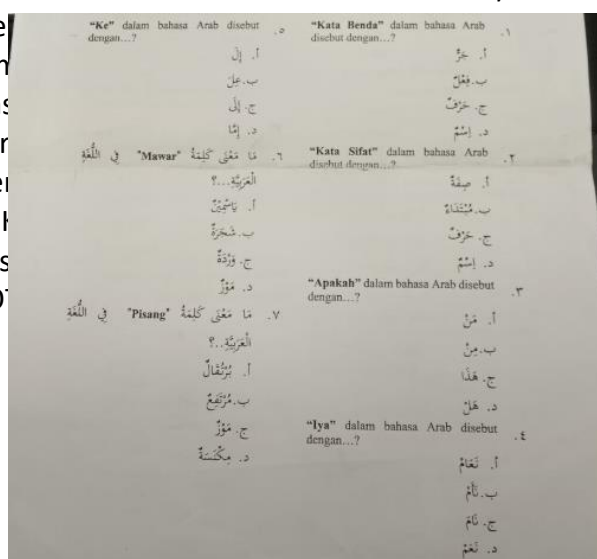 ١. "Kata Benda" dalam bahasa Arab
disebut dengan...?
أ. جَرٌّ
ب. فِعْلٌ
ج. حَرْفٌ
د. اِسْمٌ
٢. "Kata Sifat" dalam bahasa Arab
disebut dengan...?
أ. صِفَةٌ
ب. مُبْتَدَاءٌ
ج. حَرْفٌ
د. اِسْمٌ
٣. "Apakah" dalam bahasa Arab disebut
dengan...?
أ. مَنْ
ب. مِنْ
ج. هَذَا
د. هَلْ
٤. "Iya" dalam bahasa Arab disebut
dengan...?
أ. نَعَامْ
ب. نَأَمْ
ج. نَامَ
د. نَعَمْ
٥. "Ke" dalam bahasa Arab disebut
dengan...?
أ. إِلَ
ب. عِلَ
ج. إِلَى
د. إِمَّا
٦. مَا مَعْنَى كَلِمَةُ "Mawar" فِي اللُّغَةِ
الْعَرَبِيَّةِ...؟
أ. يَاسْمِيْنٌ
ب. شَجَرَةٌ
ج. وَرْدَةٌ
د. مَوْزٌ
٧. مَا مَعْنَى كَلِمَةُ "Pisang" فِي اللُّغَةِ
الْعَرَبِيَّةِ..؟
أ. بُرْتُقَالٌ
ب. مُرْتَفِعٌ
ج. مَوْزٌ
د. مِكْنَسَةٌ